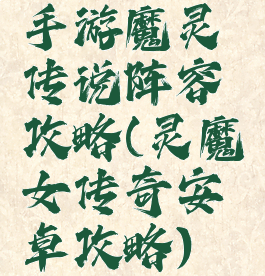 手游魔灵
传说阵容
攻略(灵魔
女传奇安
卓攻略)